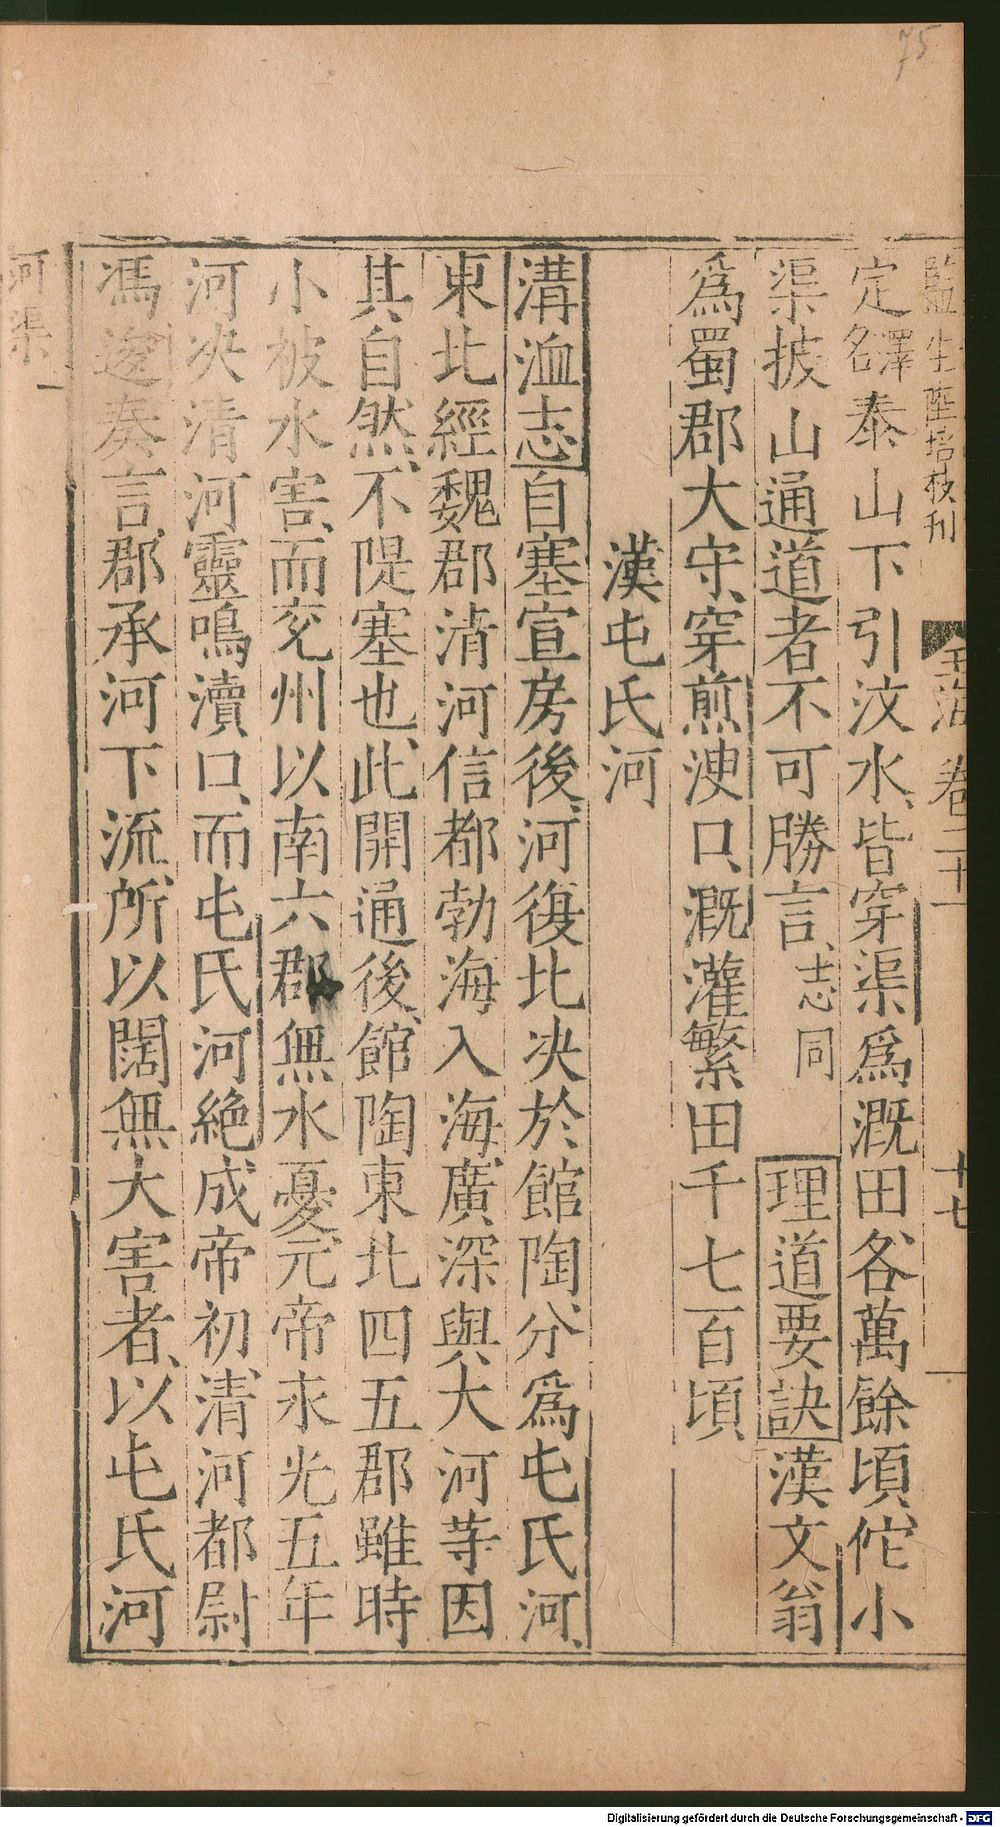 75
監生陸培校刊
玉海 卷二十一 十七
定名澤泰山下引汶水、皆穿渠爲溉田、各萬餘頃、佗小
渠披山通道者不可勝言、志同 理道要訣漢文翁
爲蜀郡大守、穿煎㳛口、溉灌繁田千七百頃
漢屯氏河
溝洫志自塞宣房後、河復北决於館陶、分爲屯氏河、
東北經魏郡淸河信都勃海入海、廣深與大河䓁、因
其自然、不隄塞也、此開通後、館陶東北四五郡雖時
小被水害、而兖州以南六郡無水憂、元帝永光五年
河决清河靈鳴瀆口、而屯氏河絶、成帝初、清河都尉
馮逡奏言、郡承河下流、所以闊無大害者、以屯氏河
河渠 一
Digitalisierung gefördert durch die Deutsche Forschungsgemeinschaft - DFG